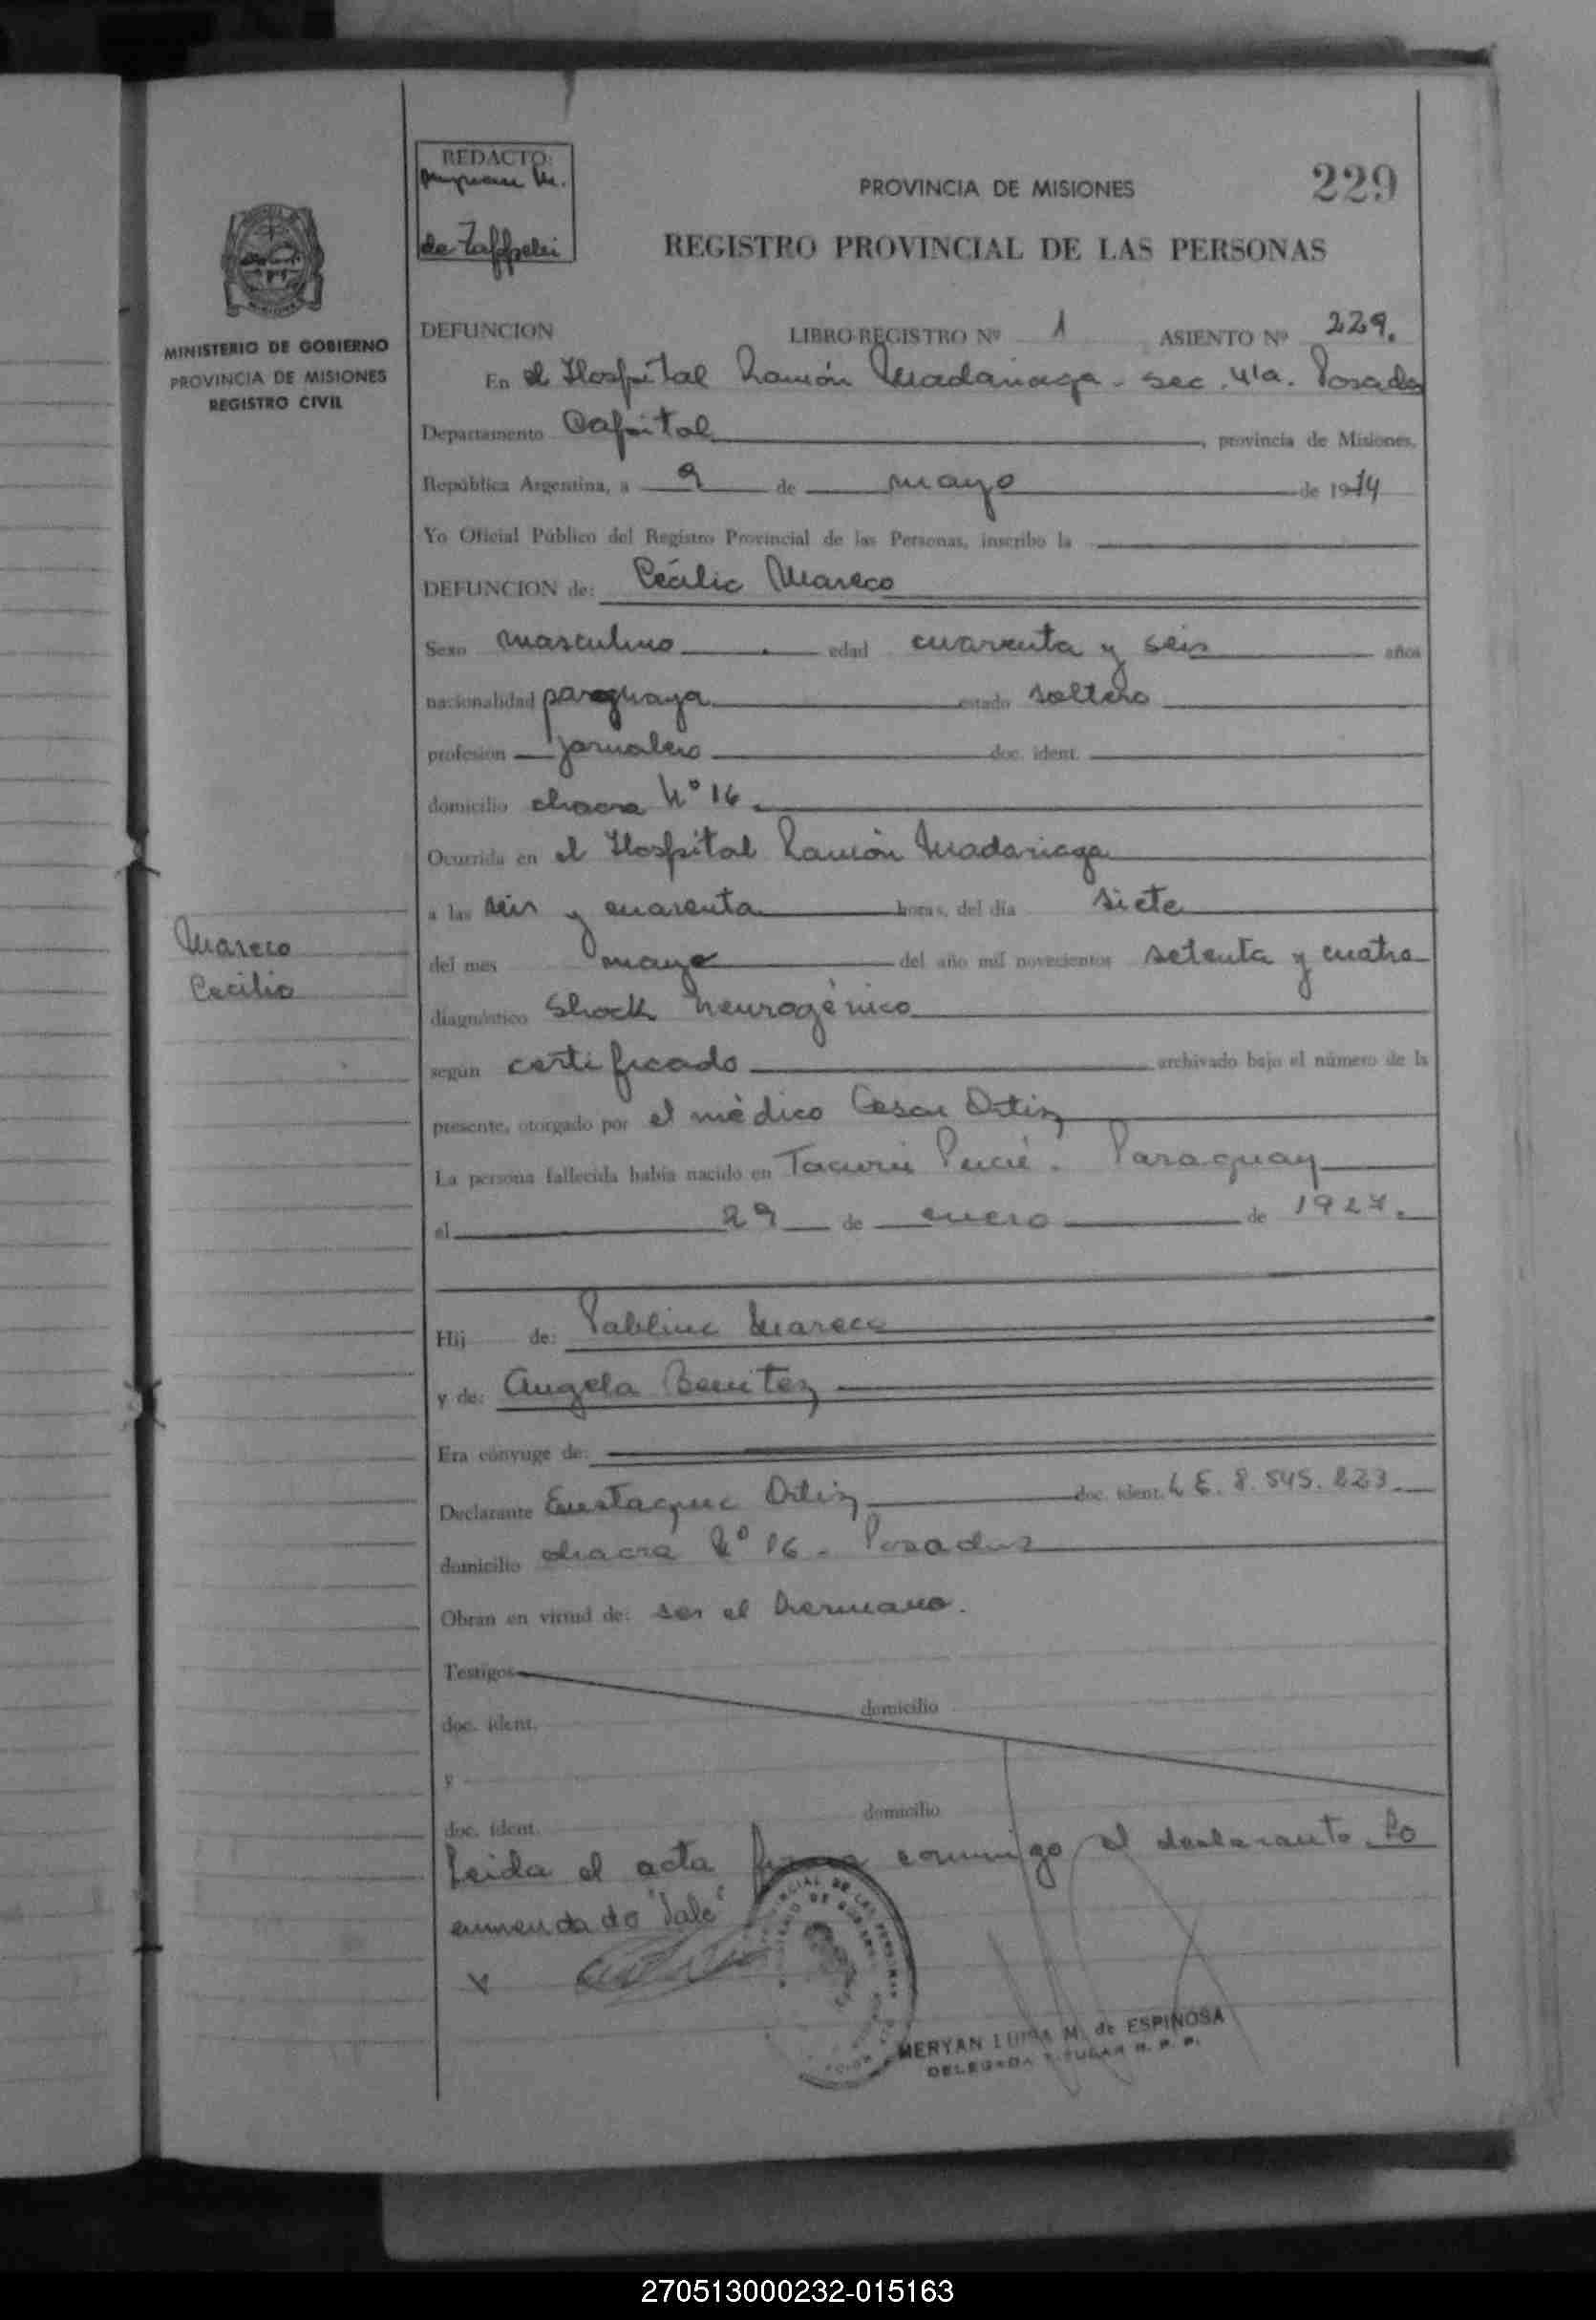 229
REDACTO:
de Zaffpelei
PROVINCIA DE MISIONES
REGISTRO PROVINCIAL DE LAS PERSONAS
MINISTERIO DE GOBIERNO
PROVINCIA DE MISIONES
REGISTRO CIVIL
DEFUNCION LIBRO-REGISTRO Nº 1 ASIENTO Nº 229.
En el Hospital Ramón Madariaga - sec. 4ta. Posadas
Departamento Capital, provincia de Misiones,
República Argentina, a 9 de mayo de 1974
Yo Oficial Público del Registro Provincial de las Personas, inscribo la
DEFUNCION de: Cecilio Mareco
Sexo masculino edad cuarenta y seis años
nacionalidad paraguaya estado soltero
profesión jornalero doc. ident.
domicilio chacra Nº 16.
Ocurrida en el Hospital Ramón Madariaga
a las seis y cuarenta horas, del día siete
del mes mayo del año mil novecientos setenta y cuatro
Mareco
Cecilio
diagnóstico Shock neurogénico
según certificado archivado bajo el número de la
presente, otorgado por el médico Cesar Ortiz
La persona fallecida había nacido en Tacurú Pucú. Paraguay
el 29 de enero de 1927.
Hij de: Pablino Mareco
y de: Angela Benitez
Era cónyuge de:
Declarante Eustaquio Ortiz doc. ident. L E. 8.545.223.
domicilio chacra Nº 16 - Posadas
Obran en virtud de: ser el hermano.
Testigos
doc. ident. domicilio
y
doc. ident. domicilio
Leida el acta firma conmigo el declarante. Lo
enmendado "Vale"
MERYAN LUISA M. de ESPINOSA
DELEGADA TITULAR R. P. P.
270513000232-015163